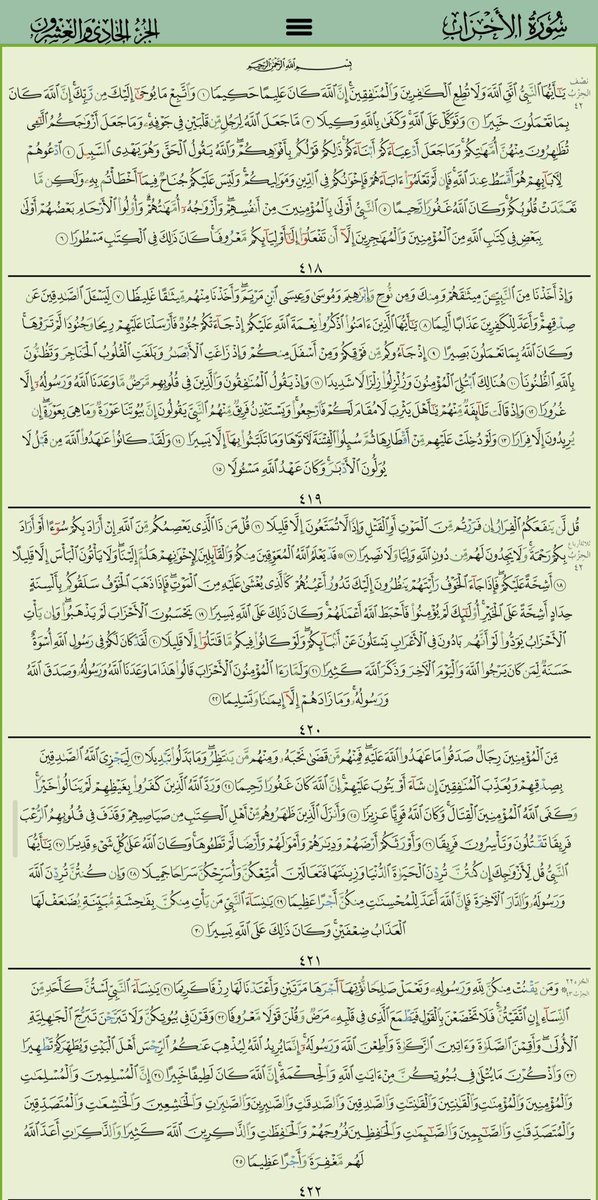 سُورَةُ الأَحْزَاب
الجُزءُ الحَادِي وَالعِشرُون
بِسۡمِ ٱللَّهِ ٱلرَّحۡمَٰنِ ٱلرَّحِيمِ
نصف الحزب ٤٢
يَٰٓأَيُّهَا ٱلنَّبِيُّ ٱتَّقِ ٱللَّهَ وَلَا تُطِعِ ٱلۡكَٰفِرِينَ وَٱلۡمُنَٰفِقِينَۚ إِنَّ ٱللَّهَ كَانَ عَلِيمًا حَكِيمٗا ١ وَٱتَّبِعۡ مَا يُوحَىٰٓ إِلَيۡكَ مِن رَّبِّكَۚ إِنَّ ٱللَّهَ كَانَ
بِمَا تَعۡمَلُونَ خَبِيرٗا ٢ وَتَوَكَّلۡ عَلَى ٱللَّهِۚ وَكَفَىٰ بِٱللَّهِ وَكِيلٗا ٣ مَّا جَعَلَ ٱللَّهُ لِرَجُلٖ مِّن قَلۡبَيۡنِ فِي جَوۡفِهِۦۚ وَمَا جَعَلَ أَزۡوَٰجَكُمُ ٱلَّٰٓـِٔي
تُظَٰهِرُونَ مِنۡهُنَّ أُمَّهَٰتِكُمۡۚ وَمَا جَعَلَ أَدۡعِيَآءَكُمۡ أَبۡنَآءَكُمۡۚ ذَٰلِكُمۡ قَوۡلُكُم بِأَفۡوَٰهِكُمۡۖ وَٱللَّهُ يَقُولُ ٱلۡحَقَّ وَهُوَ يَهۡدِي ٱلسَّبِيلَ ٤ ٱدۡعُوهُمۡ
لِأٓبَآئِهِمۡ هُوَ أَقۡسَطُ عِندَ ٱللَّهِۚ فَإِن لَّمۡ تَعۡلَمُوٓاْ ءَابَآءَهُمۡ فَإِخۡوَٰنُكُمۡ فِي ٱلدِّينِ وَمَوَٰلِيكُمۡۚ وَلَيۡسَ عَلَيۡكُمۡ جُنَاحٞ فِيمَآ أَخۡطَأۡتُم بِهِۦ وَلَٰكِن مَّا
تَعَمَّدَتۡ قُلُوبُكُمۡۚ وَكَانَ ٱللَّهُ غَفُورٗا رَّحِيمًا ٥ ٱلنَّبِيُّ أَوۡلَىٰ بِٱلۡمُؤۡمِنِينَ مِنۡ أَنفُسِهِمۡۖ وَأَزۡوَٰجُهُۥٓ أُمَّهَٰتُهُمۡۗ وَأُوْلُواْ ٱلۡأَرۡحَامِ بَعۡضُهُمۡ أَوۡلَىٰ
بِبَعۡضٖ فِي كِتَٰبِ ٱللَّهِ مِنَ ٱلۡمُؤۡمِنِينَ وَٱلۡمُهَٰجِرِينَ إِلَّآ أَن تَفۡعَلُوٓاْ إِلَىٰٓ أَوۡلِيَآئِكُم مَّعۡرُوفٗاۚ كَانَ ذَٰلِكَ فِي ٱلۡكِتَٰبِ مَسۡطُورٗا ٦
٤١٨
وَإِذۡ أَخَذۡنَا مِنَ ٱلنَّبِيِّـۧنَ مِيثَٰقَهُمۡ وَمِنكَ وَمِن نُّوحٖ وَإِبۡرَٰهِيمَ وَمُوسَىٰ وَعِيسَى ٱبۡنِ مَرۡيَمَۖ وَأَخَذۡنَا مِنۡهُم مِّيثَٰقًا غَلِيظٗا ٧ لِّيَسۡـَٔلَ ٱلصَّٰدِقِينَ عَن
صِدۡقِهِمۡۚ وَأَعَدَّ لِلۡكَٰفِرِينَ عَذَابًا أَلِيمٗا ٨ يَٰٓأَيُّهَا ٱلَّذِينَ ءَامَنُواْ ٱذۡكُرُواْ نِعۡمَةَ ٱللَّهِ عَلَيۡكُمۡ إِذۡ جَآءَتۡكُمۡ جُنُودٞ فَأَرۡسَلۡنَا عَلَيۡهِمۡ رِيحٗا وَجُنُودٗا لَّمۡ تَرَوۡهَاۚ
وَكَانَ ٱللَّهُ بِمَا تَعۡمَلُونَ بَصِيرًا ٩ إِذۡ جَآءُوكُم مِّن فَوۡقِكُمۡ وَمِنۡ أَسۡفَلَ مِنكُمۡ وَإِذۡ زَاغَتِ ٱلۡأَبۡصَٰرُ وَبَلَغَتِ ٱلۡقُلُوبُ ٱلۡحَنَاجِرَ وَتَظُنُّونَ
بِٱللَّهِ ٱلظُّنُونَا۠ ١٠ هُنَالِكَ ٱبۡتُلِيَ ٱلۡمُؤۡمِنُونَ وَزُلۡزِلُواْ زِلۡزَالٗا شَدِيدٗا ١١ وَإِذۡ يَقُولُ ٱلۡمُنَٰفِقُونَ وَٱلَّذِينَ فِي قُلُوبِهِم مَّرَضٞ مَّا وَعَدَنَا ٱللَّهُ وَرَسُولُهُۥٓ إِلَّا
غُرُورٗا ١٢ وَإِذۡ قَالَت طَّآئِفَةٞ مِّنۡهُمۡ يَٰٓأَهۡلَ يَثۡرِبَ لَا مُقَامَ لَكُمۡ فَٱرۡجِعُواْۚ وَيَسۡتَـٔۡذِنُ فَرِيقٞ مِّنۡهُمُ ٱلنَّبِيَّ يَقُولُونَ إِنَّ بُيُوتَنَا عَوۡرَةٞ وَمَا هِيَ بِعَوۡرَةٍۖ إِن
يُرِيدُونَ إِلَّا فِرَارٗا ١٣ وَلَوۡ دُخِلَتۡ عَلَيۡهِم مِّنۡ أَقۡطَارِهَا ثُمَّ سُئِلُواْ ٱلۡفِتۡنَةَ لَأٓتَوۡهَا وَمَا تَلَبَّثُواْ بِهَآ إِلَّا يَسِيرٗا ١٤ وَلَقَدۡ كَانُواْ عَٰهَدُواْ ٱللَّهَ مِن قَبۡلُ لَا
يُوَلُّونَ ٱلۡأَدۡبَٰرَۚ وَكَانَ عَهۡدُ ٱللَّهِ مَسۡـُٔولٗا ١٥
٤١٩
قُل لَّن يَنفَعَكُمُ ٱلۡفِرَارُ إِن فَرَرۡتُم مِّنَ ٱلۡمَوۡتِ أَوِ ٱلۡقَتۡلِ وَإِذٗا لَّا تُمَتَّعُونَ إِلَّا قَلِيلٗا ١٦ قُلۡ مَن ذَا ٱلَّذِي يَعۡصِمُكُم مِّنَ ٱللَّهِ إِنۡ أَرَادَ بِكُمۡ سُوٓءًا أَوۡ أَرَادَ
ثلاثة أرباع الحزب ٤٢
بِكُمۡ رَحۡمَةٗۚ وَلَا يَجِدُونَ لَهُم مِّن دُونِ ٱللَّهِ وَلِيّٗا وَلَا نَصِيرٗا ١٧ ۞ قَدۡ يَعۡلَمُ ٱللَّهُ ٱلۡمُعَوِّقِينَ مِنكُمۡ وَٱلۡقَآئِلِينَ لِإِخۡوَٰنِهِمۡ هَلُمَّ إِلَيۡنَاۖ وَلَا يَأۡتُونَ ٱلۡبَأۡسَ إِلَّا قَلِيلًا
١٨ أَشِحَّةً عَلَيۡكُمۡۖ فَإِذَا جَآءَ ٱلۡخَوۡفُ رَأَيۡتَهُمۡ يَنظُرُونَ إِلَيۡكَ تَدُورُ أَعۡيُنُهُمۡ كَٱلَّذِي يُغۡشَىٰ عَلَيۡهِ مِنَ ٱلۡمَوۡتِۖ فَإِذَا ذَهَبَ ٱلۡخَوۡفُ سَلَقُوكُم بِأَلۡسِنَةٍ
حِدَادٍ أَشِحَّةً عَلَى ٱلۡخَيۡرِۚ أُوْلَٰٓئِكَ لَمۡ يُؤۡمِنُواْ فَأَحۡبَطَ ٱللَّهُ أَعۡمَٰلَهُمۡۚ وَكَانَ ذَٰلِكَ عَلَى ٱللَّهِ يَسِيرٗا ١٩ يَحۡسَبُونَ ٱلۡأَحۡزَابَ لَمۡ يَذۡهَبُواْۖ وَإِن يَأۡتِ
ٱلۡأَحۡزَابُ يَوَدُّواْ لَوۡ أَنَّهُم بَادُونَ فِي ٱلۡأَعۡرَابِ يَسۡـَٔلُونَ عَنۡ أَنۢبَآئِكُمۡۖ وَلَوۡ كَانُواْ فِيكُم مَّا قَٰتَلُوٓاْ إِلَّا قَلِيلٗا ٢٠ لَّقَدۡ كَانَ لَكُمۡ فِي رَسُولِ ٱللَّهِ أُسۡوَةٌ
حَسَنَةٞ لِّمَن كَانَ يَرۡجُواْ ٱللَّهَ وَٱلۡيَوۡمَ ٱلۡأٓخِرَ وَذَكَرَ ٱللَّهَ كَثِيرٗا ٢١ وَلَمَّا رَءَا ٱلۡمُؤۡمِنُونَ ٱلۡأَحۡزَابَ قَالُواْ هَٰذَا مَا وَعَدَنَا ٱللَّهُ وَرَسُولُهُۥ وَصَدَقَ ٱللَّهُ
وَرَسُولُهُۥۚ وَمَا زَادَهُمۡ إِلَّآ إِيمَٰنٗا وَتَسۡلِيمٗا ٢٢
٤٢٠
مِّنَ ٱلۡمُؤۡمِنِينَ رِجَالٞ صَدَقُواْ مَا عَٰهَدُواْ ٱللَّهَ عَلَيۡهِۖ فَمِنۡهُم مَّن قَضَىٰ نَحۡبَهُۥ وَمِنۡهُم مَّن يَنتَظِرُۖ وَمَا بَدَّلُواْ تَبۡدِيلٗا ٢٣ لِّيَجۡزِيَ ٱللَّهُ ٱلصَّٰدِقِينَ
بِصِدۡقِهِمۡ وَيُعَذِّبَ ٱلۡمُنَٰفِقِينَ إِن شَآءَ أَوۡ يَتُوبَ عَلَيۡهِمۡۚ إِنَّ ٱللَّهَ كَانَ غَفُورٗا رَّحِيمٗا ٢٤ وَرَدَّ ٱللَّهُ ٱلَّذِينَ كَفَرُواْ بِغَيۡظِهِمۡ لَمۡ يَنَالُواْ خَيۡرٗاۚ
وَكَفَى ٱللَّهُ ٱلۡمُؤۡمِنِينَ ٱلۡقِتَالَۚ وَكَانَ ٱللَّهُ قَوِيًّا عَزِيزٗا ٢٥ وَأَنزَلَ ٱلَّذِينَ ظَٰهَرُوهُم مِّنۡ أَهۡلِ ٱلۡكِتَٰبِ مِن صَيَاصِيهِمۡ وَقَذَفَ فِي قُلُوبِهِمُ ٱلرُّعۡبَ
فَرِيقٗا تَقۡتُلُونَ وَتَأۡسِرُونَ فَرِيقٗا ٢٦ وَأَوۡرَثَكُمۡ أَرۡضَهُمۡ وَدِيَٰرَهُمۡ وَأَمۡوَٰلَهُمۡ وَأَرۡضٗا لَّمۡ تَطَـُٔوهَاۚ وَكَانَ ٱللَّهُ عَلَىٰ كُلِّ شَيۡءٖ قَدِيرٗا ٢٧ يَٰٓأَيُّهَا
ٱلنَّبِيُّ قُل لِّأَزۡوَٰجِكَ إِن كُنتُنَّ تُرِدۡنَ ٱلۡحَيَوٰةَ ٱلدُّنۡيَا وَزِينَتَهَا فَتَعَالَيۡنَ أُمَتِّعۡكُنَّ وَأُسَرِّحۡكُنَّ سَرَاحٗا جَمِيلٗا ٢٨ وَإِن كُنتُنَّ تُرِدۡنَ ٱللَّهَ
وَرَسُولَهُۥ وَٱلدَّارَ ٱلۡأٓخِرَةَ فَإِنَّ ٱللَّهَ أَعَدَّ لِلۡمُحۡسِنَٰتِ مِنكُنَّ أَجۡرًا عَظِيمٗا ٢٩ يَٰنِسَآءَ ٱلنَّبِيِّ مَن يَأۡتِ مِنكُنَّ بِفَٰحِشَةٖ مُّبَيِّنَةٖ يُضَٰعَفۡ لَهَا
ٱلۡعَذَابُ ضِعۡفَيۡنِۚ وَكَانَ ذَٰلِكَ عَلَى ٱللَّهِ يَسِيرٗا ٣٠
٤٢١
الجزء ٢٢ الحزب ٤٣
۞ وَمَن يَقۡنُتۡ مِنكُنَّ لِلَّهِ وَرَسُولِهِۦ وَتَعۡمَلۡ صَٰلِحٗا نُّؤۡتِهَآ أَجۡرَهَا مَرَّتَيۡنِ وَأَعۡتَدۡنَا لَهَا رِزۡقٗا كَرِيمٗا ٣١ يَٰنِسَآءَ ٱلنَّبِيِّ لَسۡتُنَّ كَأَحَدٖ مِّنَ
ٱلنِّسَآءِ إِنِ ٱتَّقَيۡتُنَّۚ فَلَا تَخۡضَعۡنَ بِٱلۡقَوۡلِ فَيَطۡمَعَ ٱلَّذِي فِي قَلۡبِهِۦ مَرَضٞ وَقُلۡنَ قَوۡلٗا مَّعۡرُوفٗا ٣٢ وَقَرۡنَ فِي بُيُوتِكُنَّ وَلَا تَبَرَّجۡنَ تَبَرُّجَ ٱلۡجَٰهِلِيَّةِ
ٱلۡأُولَىٰۖ وَأَقِمۡنَ ٱلصَّلَوٰةَ وَءَاتِينَ ٱلزَّكَوٰةَ وَأَطِعۡنَ ٱللَّهَ وَرَسُولَهُۥٓۚ إِنَّمَا يُرِيدُ ٱللَّهُ لِيُذۡهِبَ عَنكُمُ ٱلرِّجۡسَ أَهۡلَ ٱلۡبَيۡتِ وَيُطَهِّرَكُمۡ تَطۡهِيرٗا
٣٣ وَٱذۡكُرۡنَ مَا يُتۡلَىٰ فِي بُيُوتِكُنَّ مِنۡ ءَايَٰتِ ٱللَّهِ وَٱلۡحِكۡمَةِۚ إِنَّ ٱللَّهَ كَانَ لَطِيفًا خَبِيرًا ٣٤ إِنَّ ٱلۡمُسۡلِمِينَ وَٱلۡمُسۡلِمَٰتِ
وَٱلۡمُؤۡمِنِينَ وَٱلۡمُؤۡمِنَٰتِ وَٱلۡقَٰنِتِينَ وَٱلۡقَٰنِتَٰتِ وَٱلصَّٰدِقِينَ وَٱلصَّٰدِقَٰتِ وَٱلصَّٰبِرِينَ وَٱلصَّٰبِرَٰتِ وَٱلۡخَٰشِعِينَ وَٱلۡخَٰشِعَٰتِ وَٱلۡمُتَصَدِّقِينَ
وَٱلۡمُتَصَدِّقَٰتِ وَٱلصَّٰٓئِمِينَ وَٱلصَّٰٓئِمَٰتِ وَٱلۡحَٰفِظِينَ فُرُوجَهُمۡ وَٱلۡحَٰفِظَٰتِ وَٱلذَّٰكِرِينَ ٱللَّهَ كَثِيرٗا وَٱلذَّٰكِرَٰتِ أَعَدَّ ٱللَّهُ
لَهُم مَّغۡفِرَةٗ وَأَجۡرًا عَظِيمٗا ٣٥
٤٢٢